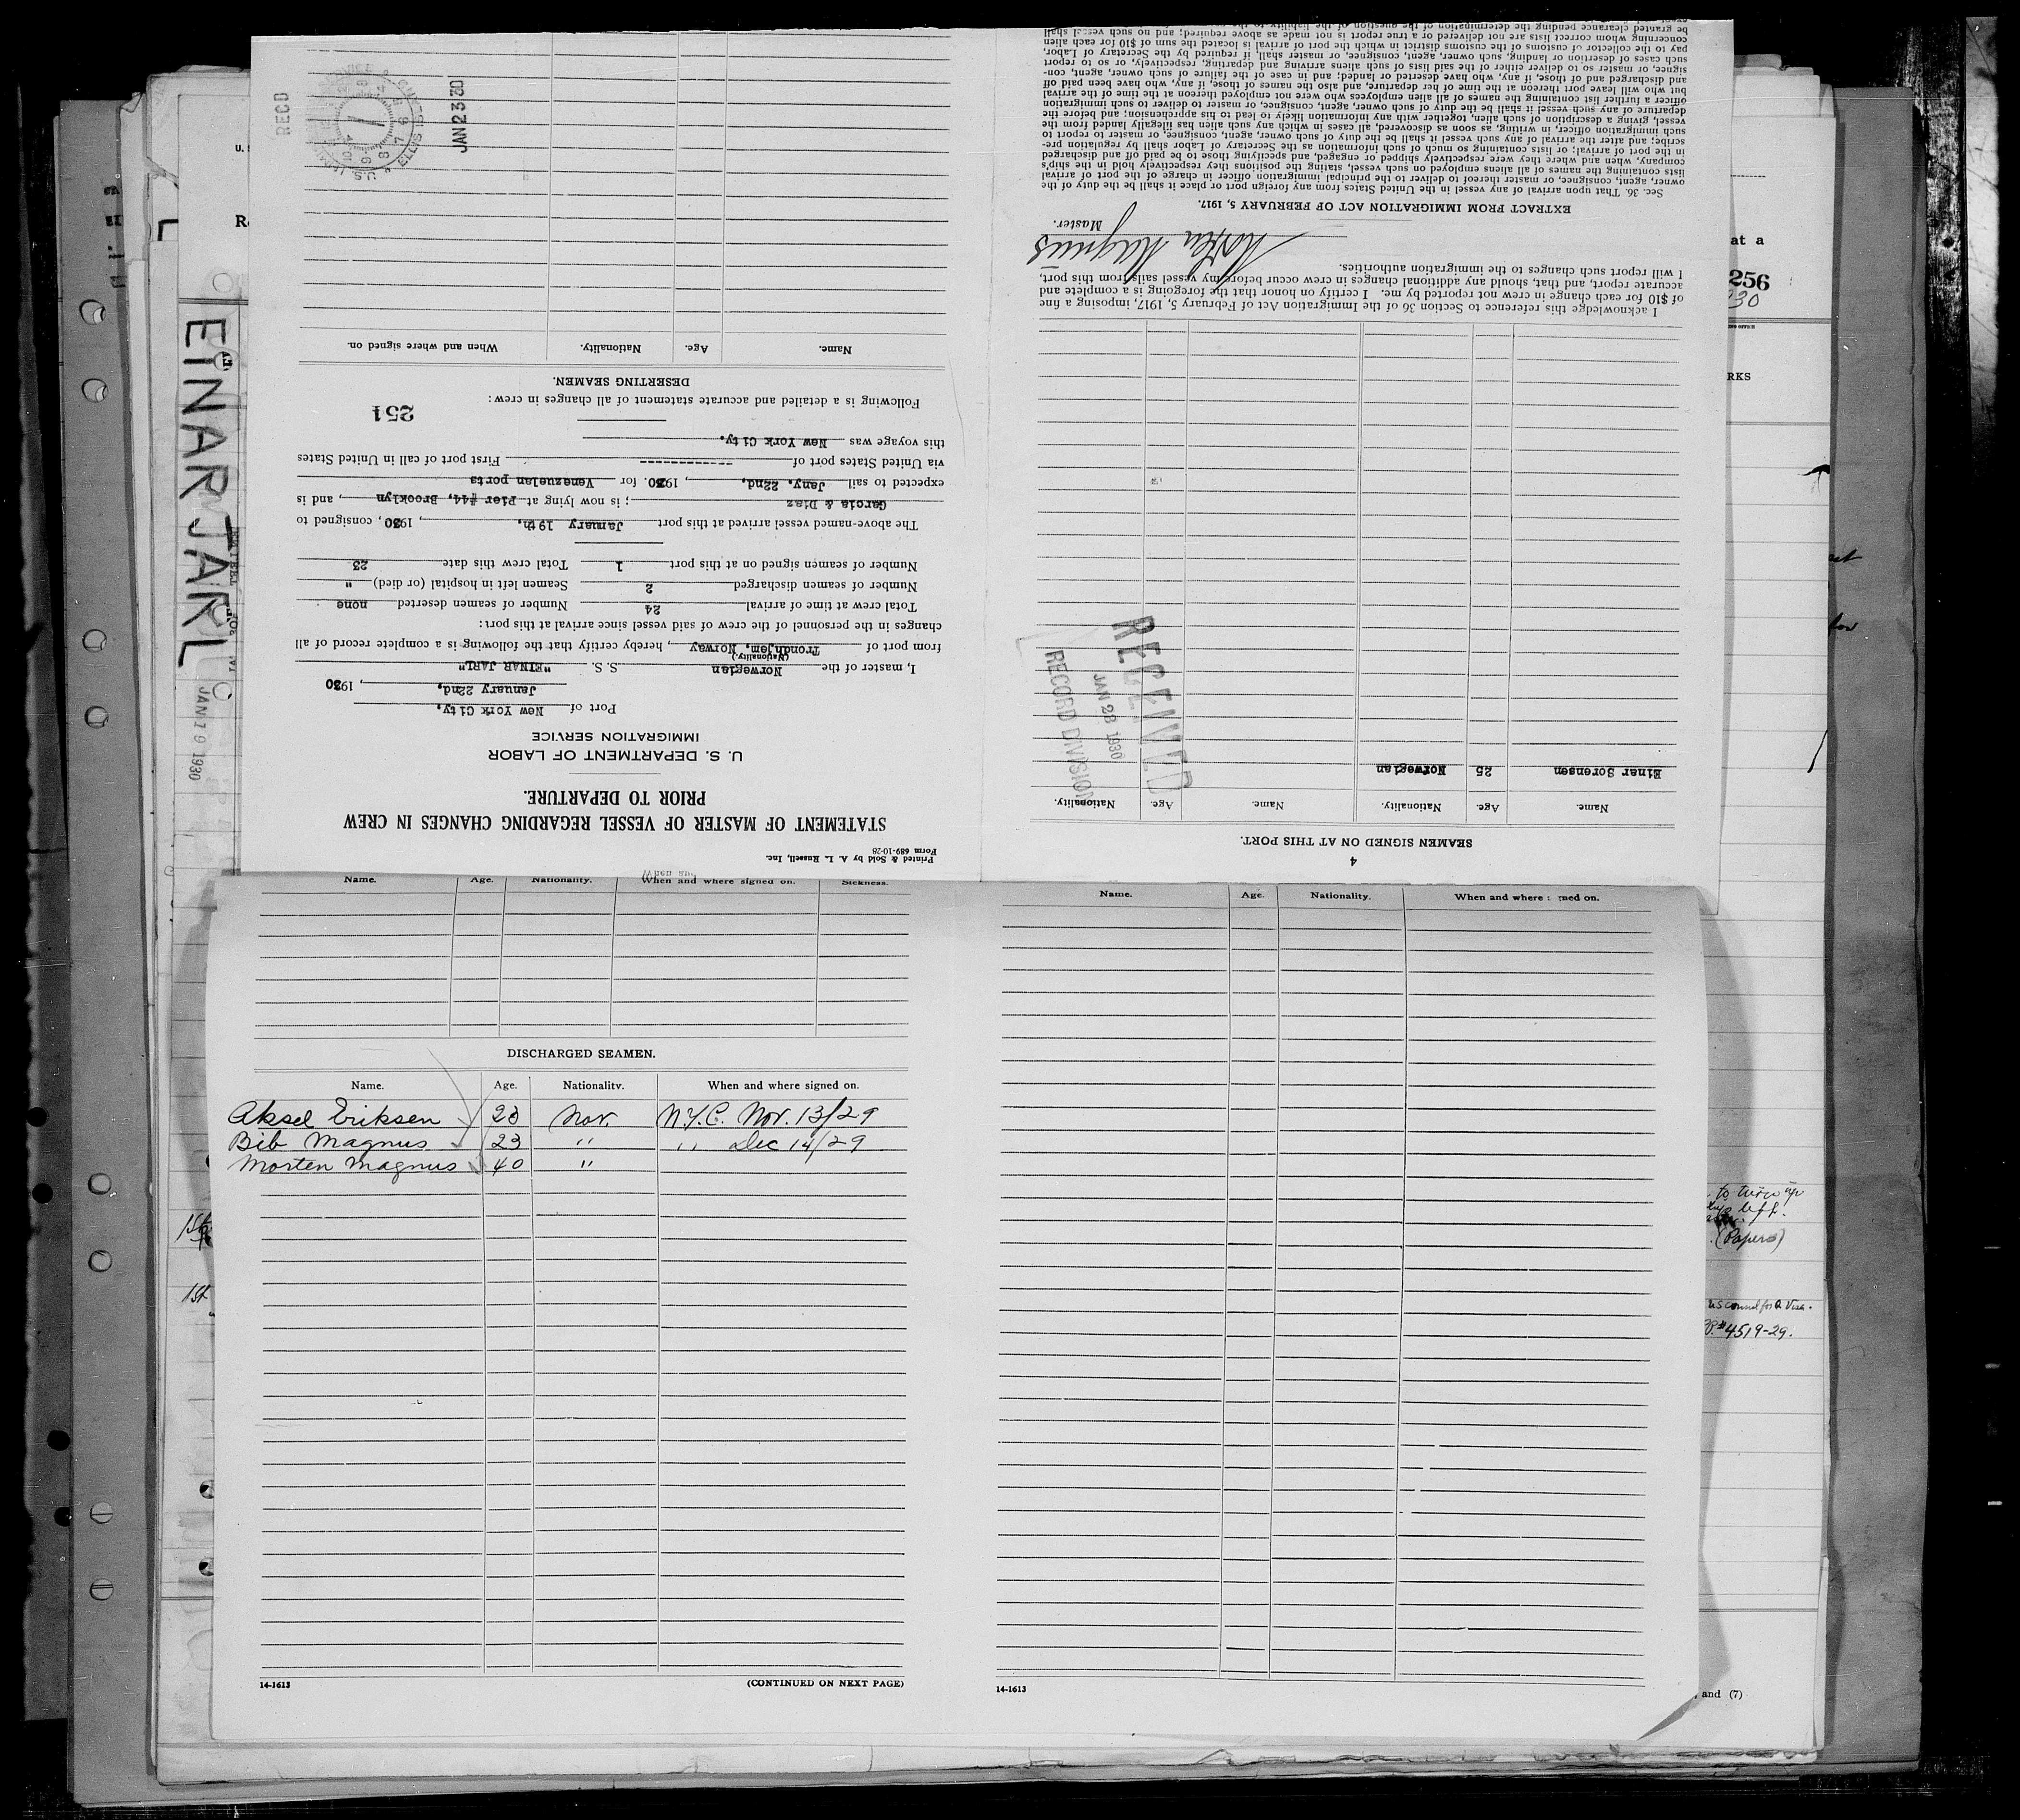 Printed & Sold by A. L. Russell, Inc.
Form 689-10-28
STATEMENT OF MASTER OF VESSEL REGARDING CHANGES IN CREW
PRIOR TO DEPARTURE.
U. S. DEPARTMENT OF LABOR
IMMIGRATION SERVICE
Port of New York City,
January 22nd, , 1930
I, master of the Norwegian S. S. "EINAR JARL"
(Nationality)
from port of Trondhjem, Norway , hereby certify that the following is a complete record of all
changes in the personnel of the crew of said vessel since arrival at this port:
Total crew at time of arrival 24 Number of seamen deserted none
Number of seamen discharged 2 Seamen left in hospital (or died) "
Number of seamen signed on at this port 1 Total crew this date 23
The above-named vessel arrived at this port January 19th, , 1930, consigned to
Garcia & Diaz ; is now lying at Pier #44, Brooklyn , and is
expected to sail Jany. 22nd, , 1930. for Venezuelan ports
via United States port of ------------ First port of call in United States
this voyage was New York City.
Following is a detailed and accurate statement of all changes in crew:
251
DESERTING SEAMEN.
Name. Age. Nationality. When and where signed on.
REC'D
JAN 23 30
U.S. IMMIGRATION SERVICE
ELLIS ISLAND
4
SEAMEN SIGNED ON AT THIS PORT.
Name. Age. Nationality. Name. Age. Nationality.
Einar Sorensen 25 Norwegian
RECEIVED
JAN 23 1930
RECORD DIVISION
I acknowledge this reference to Section 36 of the Immigration Act of February 5, 1917, imposing a fine
of $10 for each change in crew not reported by me. I certify on honor that the foregoing is a complete and
accurate report, and that, should any additional changes in crew occur before my vessel sails from this port,
I will report such changes to the immigration authorities.
Morten Magnus
Master.
EXTRACT FROM IMMIGRATION ACT OF FEBRUARY 5, 1917.
Sec. 36. That upon arrival of any vessel in the United States from any foreign port or place it shall be the duty of the
owner, agent, consignee, or master thereof to deliver to the principal immigration officer in charge of the port of arrival
lists containing the names of all aliens employed on such vessel, stating the positions they respectively hold in the ship's
company, when and where they were respectively shipped or engaged, and specifying those to be paid off and discharged
in the port of arrival; or lists containing so much of such information as the Secretary of Labor shall by regulation pre-
scribe; and after the arrival of any such vessel it shall be the duty of such owner, agent, consignee, or master to report to
such immigration officer, in writing, as soon as discovered, all cases in which any such alien has illegally landed from the
vessel, giving a description of such alien, together with any information likely to lead to his apprehension; and before the
departure of any such vessel it shall be the duty of such owner, agent, consignee, or master to deliver to such immigration
officer a further list containing the names of all alien employees who were not employed thereon at the time of the arrival
but who will leave port thereon at the time of her departure, and also the names of those, if any, who have been paid off
and discharged and of those, if any, who have deserted or landed; and in case of the failure of such owner, agent, con-
signee, or master so to deliver either of the said lists of such aliens arriving and departing, respectively, or so to report
such cases of desertion or landing, such owner, agent, consignee, or master shall, if required by the Secretary of Labor,
pay to the collector of customs of the customs district in which the port of arrival is located the sum of $10 for each alien
concerning whom correct lists are not delivered or a true report is not made as above required; and no such vessel shall
be granted clearance pending the determination of the question of the liability to the
EINAR JARL
JAN 19 1930
at a
256
RKS
Name. Age. Nationality. When and where signed on. Sickness.
DISCHARGED SEAMEN.
Name. Age. Nationality. When and where signed on.
Aksel Eriksen 23 Nor. N.Y.C. Nov. 13/29
Bib Magnus 23 " " Dec 14/29
Morten Magnus 40 "
14-1613 (CONTINUED ON NEXT PAGE)
Name. Age. Nationality. When and where signed on.
14-1613
1st
1st
to turn up
left.
(Papers)
#4519-29.
and (7)